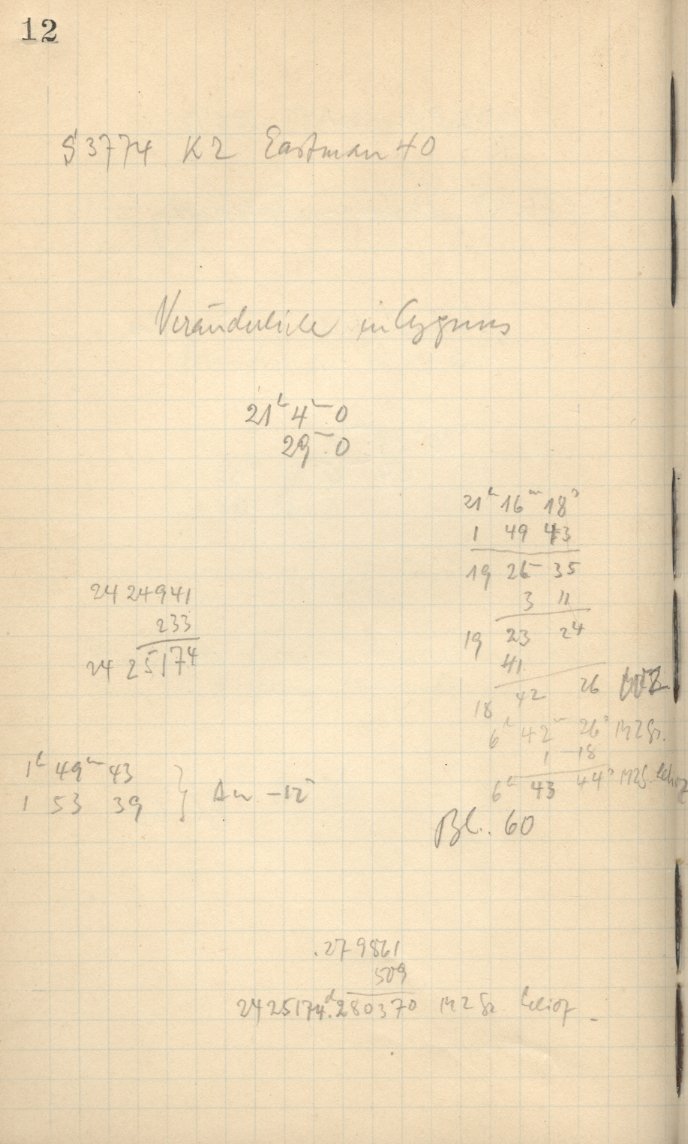 12
S 3774 K2 Eastman 40
Veränderliche in Cygnus
21ʰ 4ᵐ 0
29ᵐ 0
21ʰ 16ᵐ 18ˢ
1 49 43
19 26 35
3 11
19 23 24
41
18 42 26
6ʰ 42ᵐ 26ˢ MZGr.
1 18
6ʰ 43 44ˢ MZG. helioz
Bl. 60
24 24941
233
24 25174
1ʰ 49ᵐ 43
1 53 39 } -12
.279861
509
2425174.ᵈ280370 MZ Gr helioz.